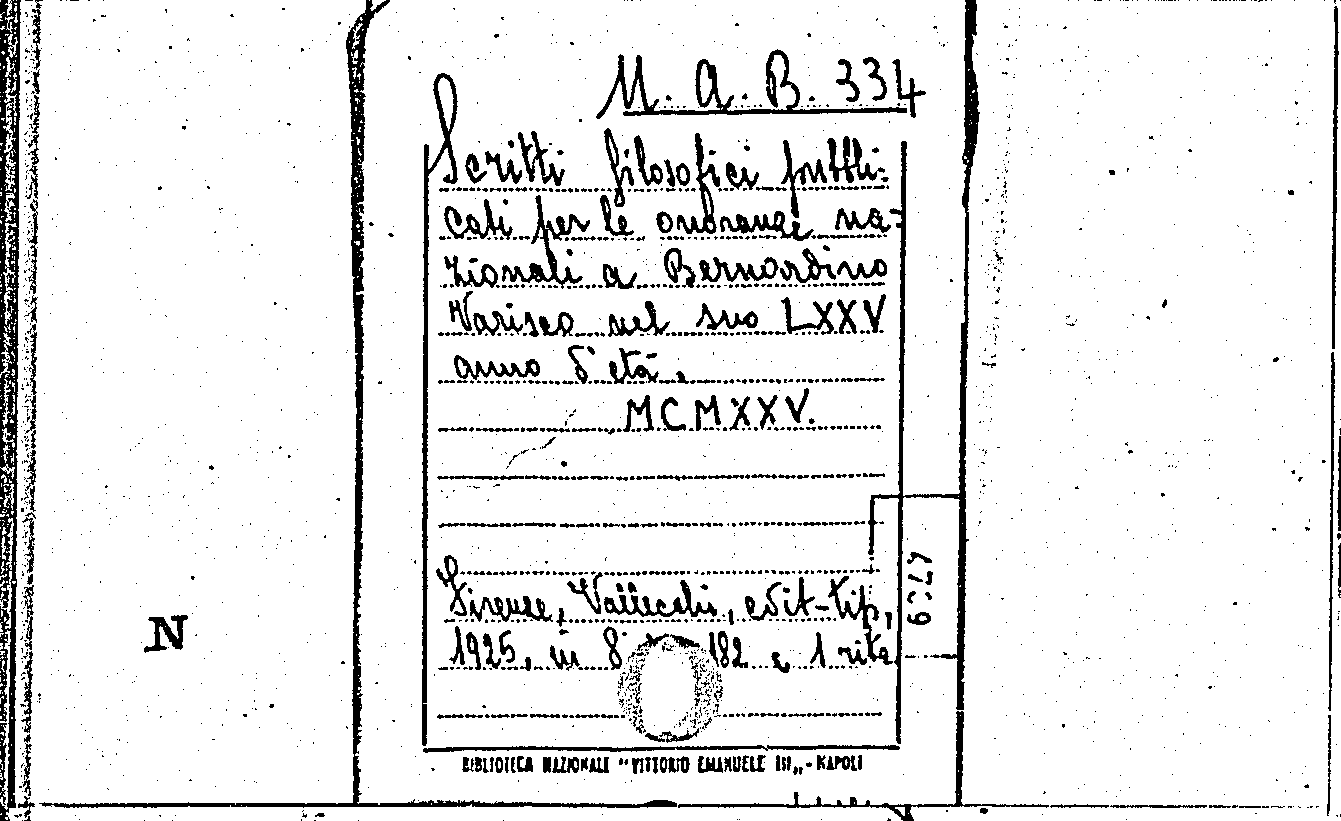 M. A. B. 334
Scritti filosofici pubbli=
cati per le onoranze na=
zionali a Bernardino
Varisco nel suo LXXV
anno d'età.
MCMXXV.
Firenze, Vallecchi, edit-tip,
1925, in 8° 182 e 1 ritr.
N
BIBLIOTECA NAZIONALE "VITTORIO EMANUELE III„ - NAPOLI